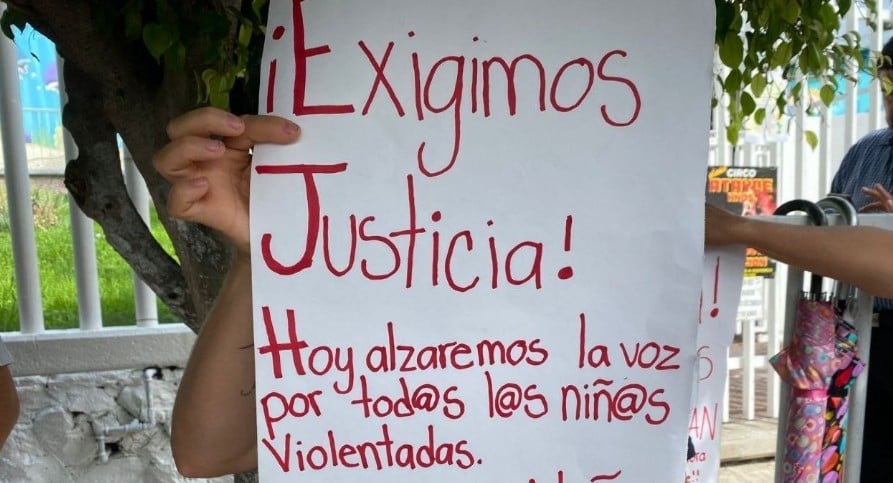 ¡Exigimos
Justicia!
Hoy alzaremos la voz
por tod@s l@s niñ@s
Violentadas.
CIRCO